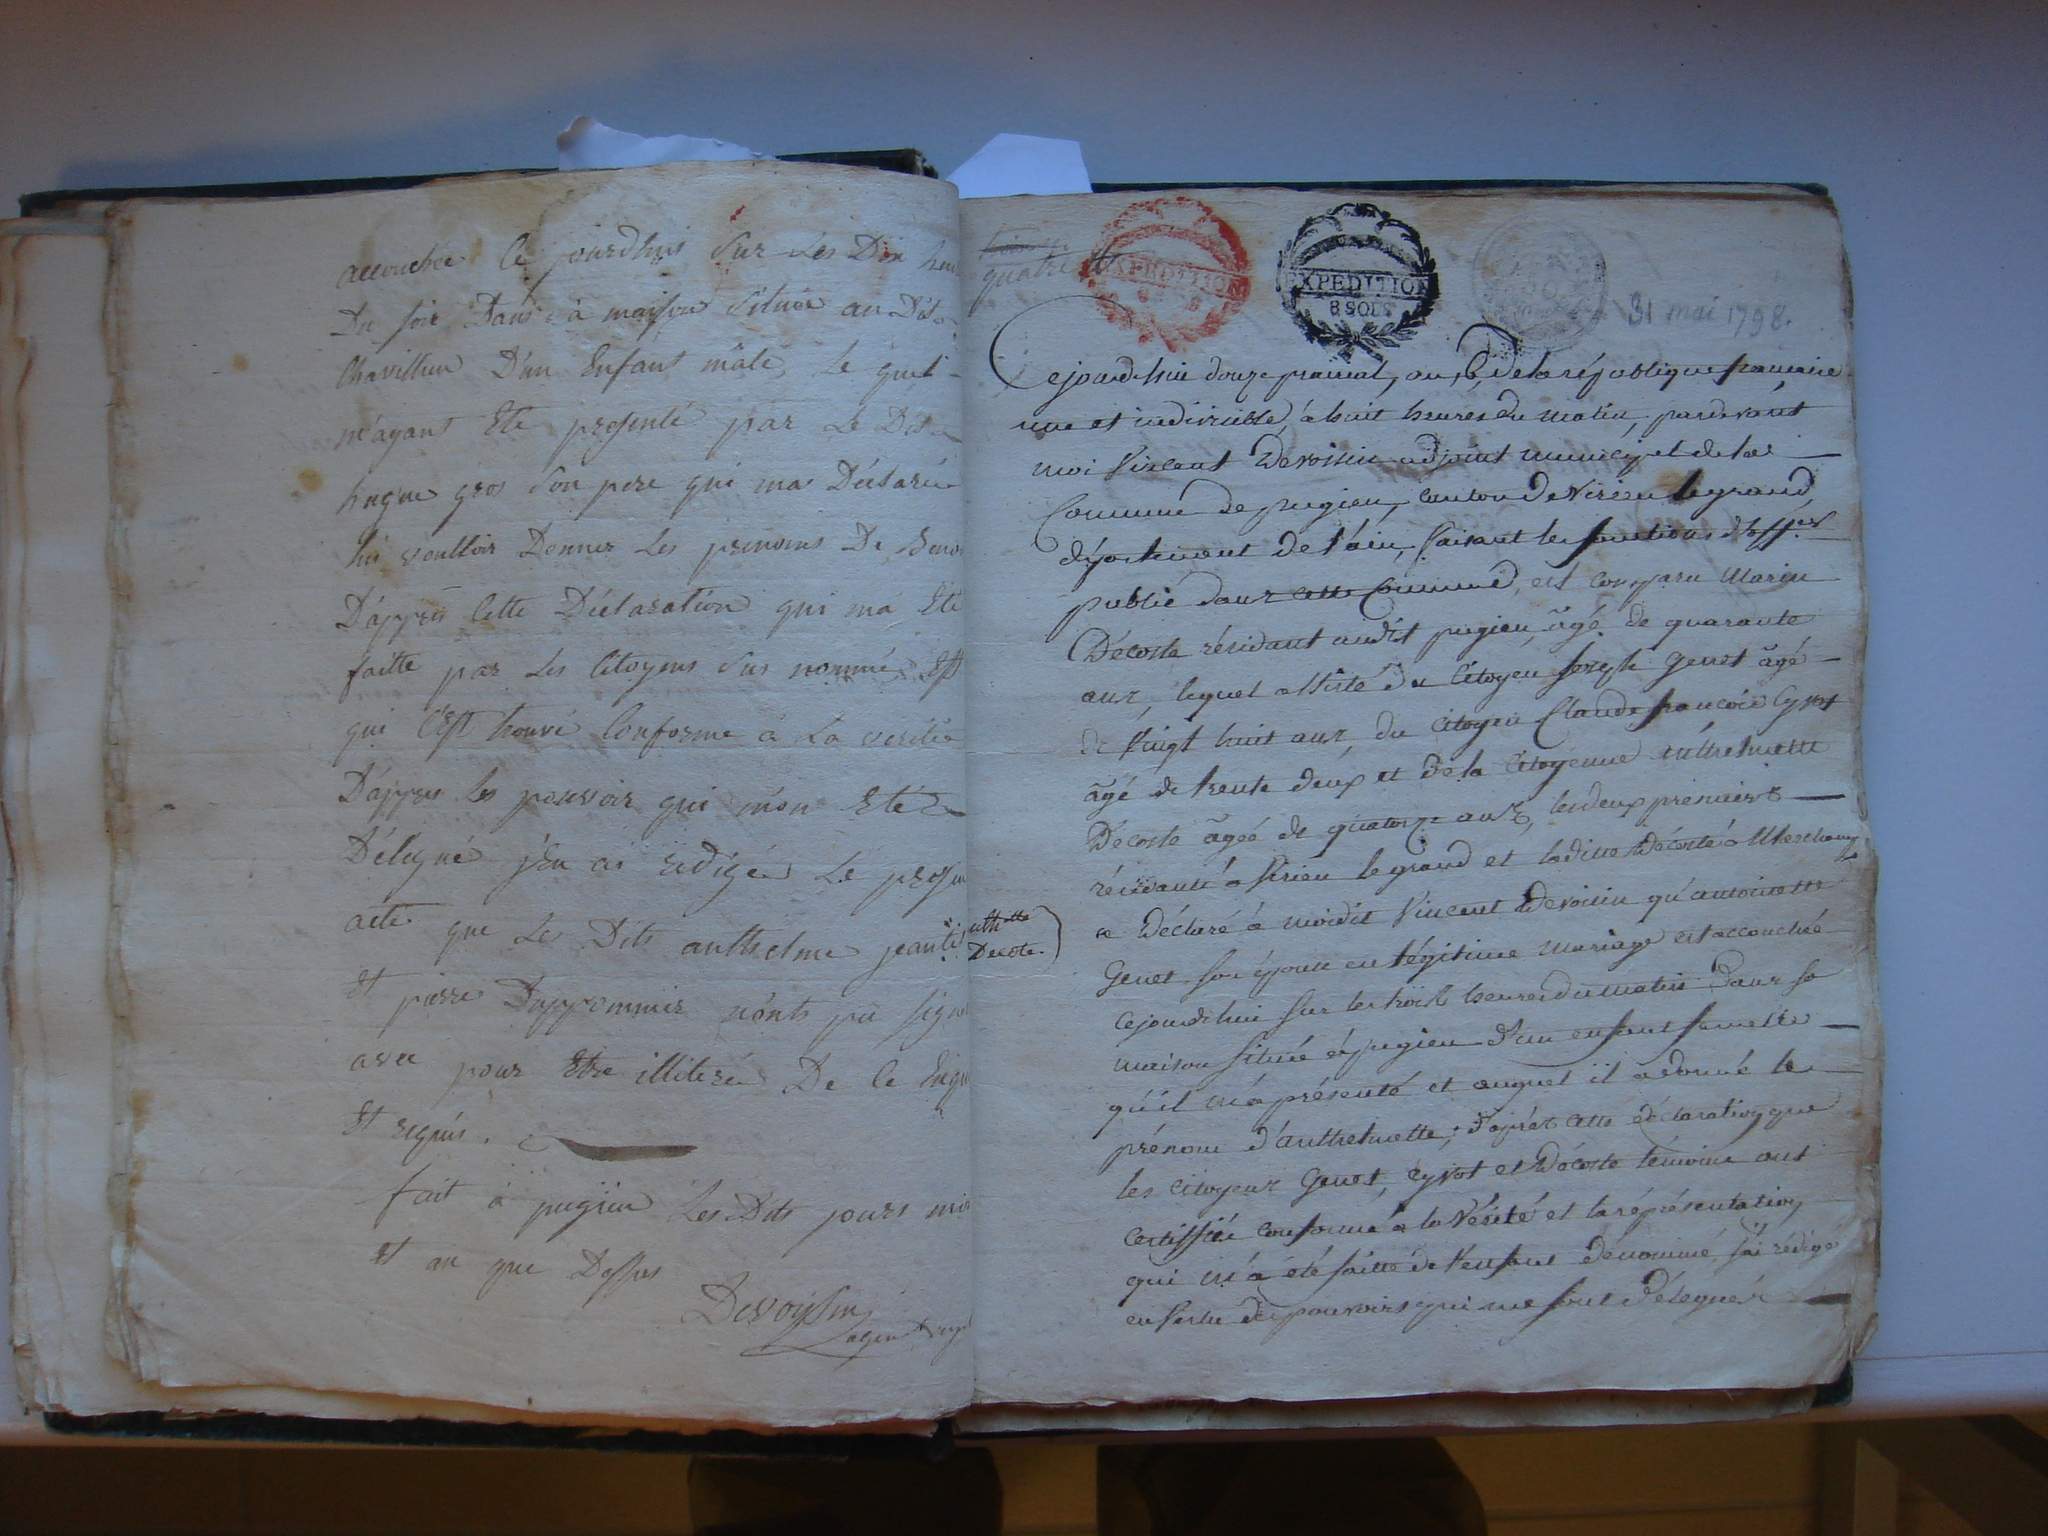 accouchée Ce jourdhui Sur Les Dix heu
Du soir Dans sà maison Située au Dit
Chavillieu D'un Enfant mâle, Le quel
m'ayant Eté présenté par Le Dit
hugue gros Son pere qui ma Déclaré
lui voulloir Donner Les prenoms De Beno
D'appres Cette Déclaration qui ma Eté
faitte par Les Citoyens Sus nommé Est
qui C'Est trouvé Conforme à La verité
D'appres Les pouvoir qui m'on Eté
Délégué j'En ai redigé Le presen
acte que Le Dits anthelme jeantit
Et pierre Dapponnier n'onts pu Signe
avec pour Etre illiteré De Ce Enqui
Et requis.
fait à pugieu Les Dits jours mois
Et an que Dessus
Devoyssin
agent
quatre
EXPEDITION
EXPEDITION
8 SOLS
31 mai 1798.
Cejourdhui douze prairial, an 6, de la république francaise
une et indivisible, à huit heures du matin, pardevant
moi Vincent Devoisin adjoint municipal de la
Commune de pugieu, canton de Virieu le grand,
département de l'ain, faisant les fonctions d'offer
public dans cette Commune, est comparu Marin
Décoste résidant audit pugieu, âgé de quarante
ans, lequel assisté du Citoyen Joseph Genet âgé
de Vingt huit ans, du Citoyen Claude francois Cyvot
âgé de trente deux et de la Citoyenne anthelmette
Décoste âgée de quatorze ans, les deux premiers
résidants à Virieu le grand et la ditte Décoste à
a Déclaré à moidit Vincent Devoisin qu'antoinette
Genet son épouse en légitime mariage est accouchée
cejourdhui sur les trois heures du matin dans sa
maison située à pugieu d'un enfant femelle
qu'il m'a présenté et auquel il a donné le
prénom d'anthelmette; d'après cette déclaration que
les citoyens Genet, Cyvot et Décoste témoins ont
certiffié conforme à la Vérité et la représentation
qui m'a été faitte de l'enfant dénommé, j'ai rédigé
en Vertu des pouvoirs qui me sont Délégués
anthtte
Decote